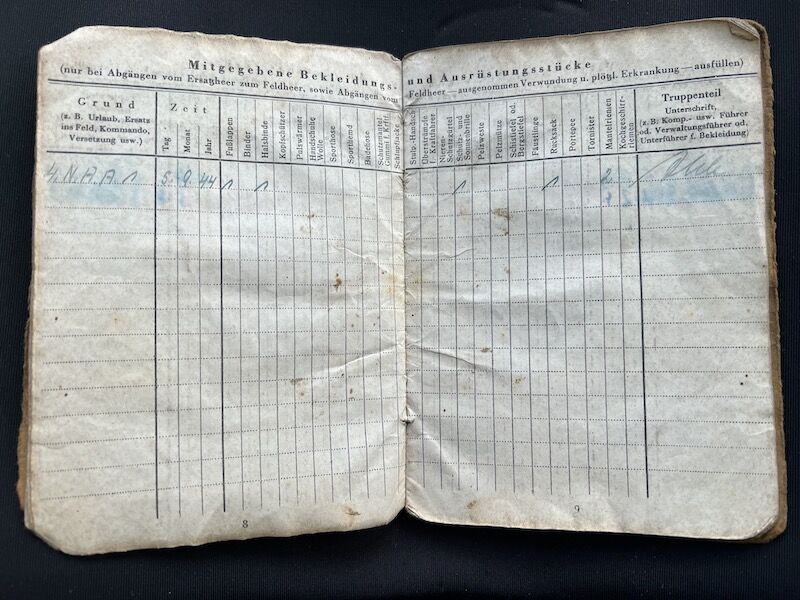 Mitgegebene Bekleidungs- und Ausrüstungsstücke
(nur bei Abgängen vom Ersatzheer zum Feldheer, sowie Abgängen vom Feldheer — ausgenommen Verwundung u. plötzl. Erkrankung — ausfüllen)
Grund
(z. B. Urlaub, Ersatz
ins Feld, Kommando,
Versetzung usw.)
Zeit
Tag
Monat
Jahr
Fußlappen
Binder
Halsbinde
Kopfschützer
Pulswärmer
Handschuhe
Wolle
Sporthose
Sporthemd
Badehose
Schutzmantel-
Gummi f. Krftf.
Schnürschuhe
Stulp.-Handsch
Überfallhemde
Kraftfahrer
Nieren-
Schutzgurt
Schutz- und
Sonnenbrille
Pelzweste
Pelzmütze
Schistiefel od.
Bergstiefel
Fäustlinge
Rucksack
Portepee
Tornister
Mantelriemen
Kochgeschirr-
riemen
Truppenteil
Unterschrift,
(z. B. Komp.- usw. Führer
od. Verwaltungsführer od.
Unterführer f. Bekleidung)
5. 9. 44 1 1 1 1 2
8
9